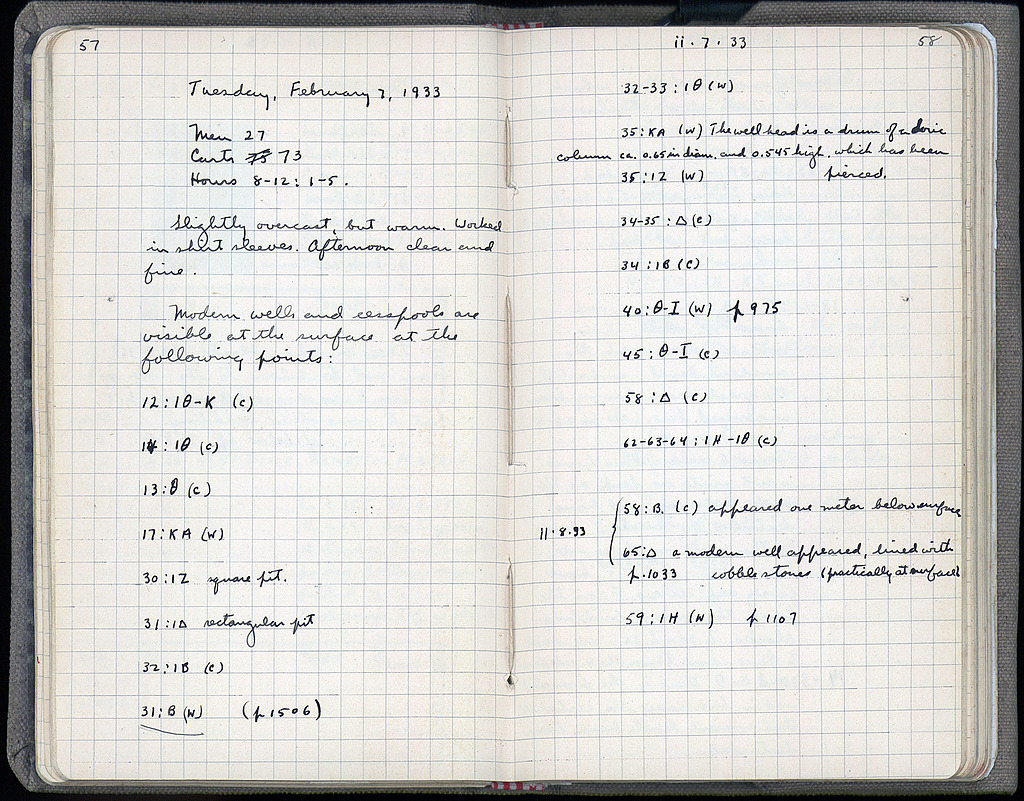 57
Tuesday, February 7, 1933
Men 27
Carts 75 73
Hours 8-12: 1-5.
Slightly overcast, but warm. Worked
in shirt sleeves. Afternoon clear and
fine.
Modern wells and cesspools are
visible at the surface at the
following points:
12:ΙΘ-Κ (c)
14:ΙΘ (c)
13:Θ (c)
17:ΚΑ (W)
30:ΙΖ square pit.
31:ΙΔ rectangular pit
32:ΙΒ (c)
31:Β (W) (p 1506)
ii · 7 · 33 58
32-33:ΙΘ (W)
35:ΚΑ (W) The well head is a drum of a doric
column ca. 0.65 in diam. and 0.545 high, which has been
35:ΙΖ (W) pierced.
34-35:Δ (c)
34:ΙΒ (c)
40:Θ-Ι (W) p 975
45:Θ-Ι (c)
58:Δ (c)
62-63-64:ΙΗ-ΙΘ (c)
58:Β. (c) appeared one meter below surface
11·8·33
65:Δ a modern well appeared, lined with
p.1033 cobble stones (practically at surface)
59:ΙΗ (W) p 1107